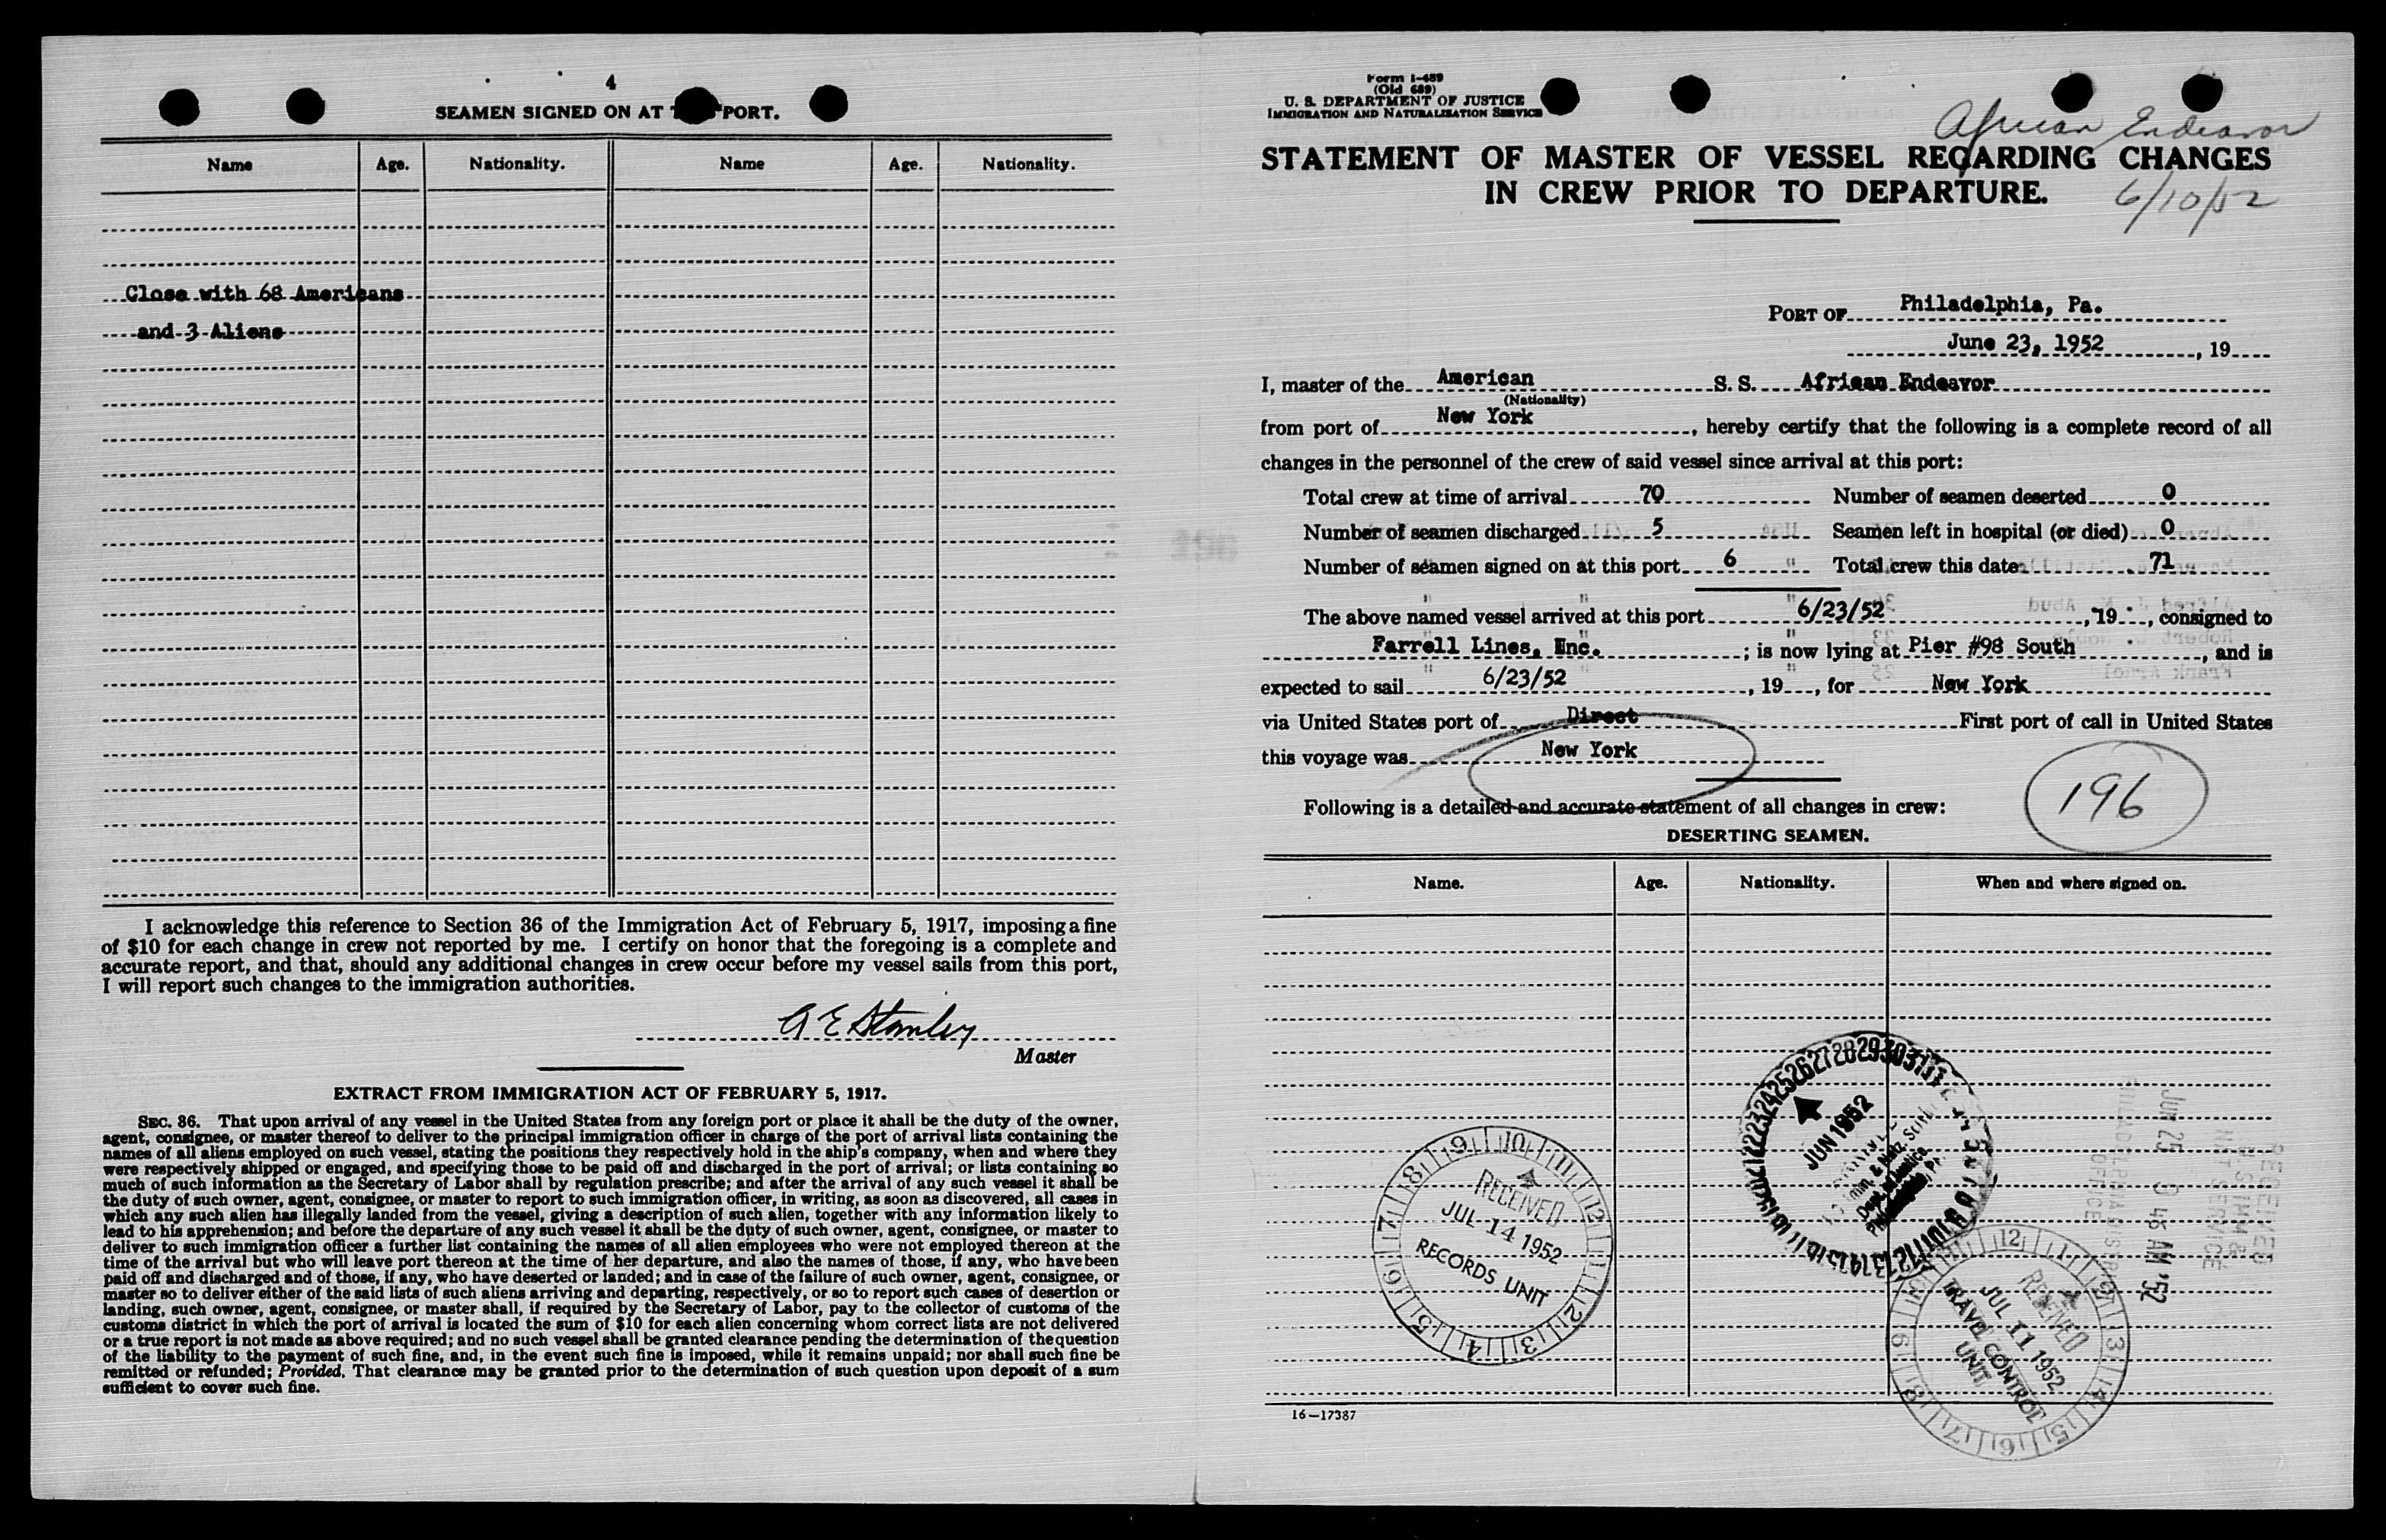 4
SEAMEN SIGNED ON AT PORT.
Name Age. Nationality. Name Age. Nationality.
Close with 68 Americans
and 3 Aliens
I acknowledge this reference to Section 36 of the Immigration Act of February 5, 1917, imposing a fine
of $10 for each change in crew not reported by me. I certify on honor that the foregoing is a complete and
accurate report, and that, should any additional changes in crew occur before my vessel sails from this port,
I will report such changes to the immigration authorities.
A E Stanley
Master
EXTRACT FROM IMMIGRATION ACT OF FEBRUARY 5, 1917.
SEC. 36. That upon arrival of any vessel in the United States from any foreign port or place it shall be the duty of the owner,
agent, consignee, or master thereof to deliver to the principal immigration officer in charge of the port of arrival lists containing the
names of all aliens employed on such vessel, stating the positions they respectively hold in the ship's company, when and where they
were respectively shipped or engaged, and specifying those to be paid off and discharged in the port of arrival; or lists containing so
much of such information as the Secretary of Labor shall by regulation prescribe; and after the arrival of any such vessel it shall be
the duty of such owner, agent, consignee, or master to report to such immigration officer, in writing, as soon as discovered, all cases in
which any such alien has illegally landed from the vessel, giving a description of such alien, together with any information likely to
lead to his apprehension; and before the departure of any such vessel it shall be the duty of such owner, agent, consignee, or master to
deliver to such immigration officer a further list containing the names of all alien employees who were not employed thereon at the
time of the arrival but who will leave port thereon at the time of her departure, and also the names of those, if any, who have been
paid off and discharged and of those, if any, who have deserted or landed; and in case of the failure of such owner, agent, consignee, or
master so to deliver either of the said lists of such aliens arriving and departing, respectively, or so to report such cases of desertion or
landing, such owner, agent, consignee, or master shall, if required by the Secretary of Labor, pay to the collector of customs of the
customs district in which the port of arrival is located the sum of $10 for each alien concerning whom correct lists are not delivered
or a true report is not made as above required; and no such vessel shall be granted clearance pending the determination of the question
of the liability to the payment of such fine, and, in the event such fine is imposed, while it remains unpaid; nor shall such fine be
remitted or refunded; Provided, That clearance may be granted prior to the determination of such question upon deposit of a sum
sufficient to cover such fine.
Form I-489
(Old 689)
U. S. DEPARTMENT OF JUSTICE
IMMIGRATION AND NATURALIZATION SERVICE
African Endeavor
STATEMENT OF MASTER OF VESSEL REGARDING CHANGES
IN CREW PRIOR TO DEPARTURE.
6/10/52
PORT OF Philadelphia, Pa.
June 23, 1952, 19
I, master of the American S. S. African Endeavor
(Nationality)
from port of New York, hereby certify that the following is a complete record of all
changes in the personnel of the crew of said vessel since arrival at this port:
Total crew at time of arrival 70 Number of seamen deserted 0
Number of seamen discharged 5 Seamen left in hospital (or died) 0
Number of seamen signed on at this port 6 Total crew this date 71
The above named vessel arrived at this port 6/23/52, 19, consigned to
Farrell Lines, Inc.; is now lying at Pier #98 South, and is
expected to sail 6/23/52, 19, for New York
via United States port of Direct First port of call in United States
this voyage was New York
196
Following is a detailed and accurate statement of all changes in crew:
DESERTING SEAMEN.
Name. Age. Nationality. When and where signed on.
RECEIVED
JUL 14 1952
RECORDS UNIT
JUN 1952
RECEIVED
JUL 11 1952
TRAVEL CONTROL
UNIT
JUN 25 9 46 AM '52
16—17387